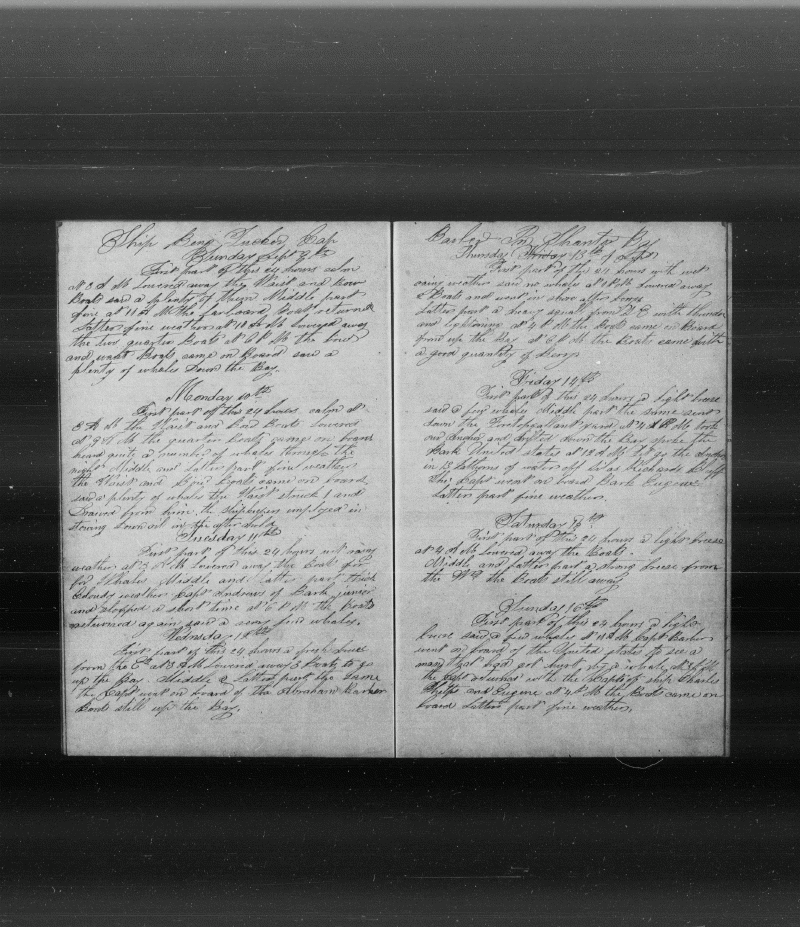 Ship Benj Tucker Cap
Sunday Sept 9th
First part of this 24 hours calm
at 3 A M Lowered away the Waist and Bow
Boats saw a plenty of them Middle part
fine at 11 A M the Larboard Boat returned
Latter fine weather at 12 M Lowered away
the two quarter Boats at 6 P M the bow
and waist Boats came on Board saw a
plenty of whales Down the Bay.
Monday 10th
First part of this 24 hours calm at
3 A M the Waist and Bow Boats Lowered
at 9 M the quarter boats came on board
heard quite a number of whales through the
night Middle and Latter part fine weather
the Waist and Bow Boats came on board
saw a plenty of whales the Waist struck 1 and
Drawed from him the Shipkeepers employed in
stowing down oil in the after hold
Tuesday 11th
First part of this 24 hours wet rainy
weather at 3 A M Lowered away the Boats
for Whales Middle and Latter part thick
cloudy weather Capt Andrews of Bark Junior
and stopped a short time at 6 P M the Boats
returned again saw a very few whales.
Wensday 12th
First part of this 24 hours a fresh breeze
from the at 3 A M Lowered away 3 Boats to go
up the Bay. Middle & Latter part the same
the Capt went on board of the Abraham Barker
Boats still up the Bay.
Barber In Shantz Bay
Thursday Friday 13th of Sept
First part of this 24 hours with wet
rainy weather saw no whales at Lowered away
2 Boats and went in shore after
Latter part a heavy squall from N E with thunder
and Lightning at 4 P M the Boats came on Board
from up the Bay at 6 P M the Boats came with
a good quantity of
Friday 14th
First part of this 24 hours a light breeze
saw a few whales Middle part the same sent
down the Foretopgallant yard at 4 P M took
our Anchor and drifted down the Bay spoke the
Bark United States at 12 M Let go the Anchor
in 13 fathoms of water off Bluff
the Capt went on board Bark Eugene
Latter part fine weather.
Saturday 15th
First part of this 24 hours a light breeze
at 4 A M Lowered away the Boats.
Middle and Latter part a strong breeze from
the the Boats still away
Sunday 16th
First part of this 24 hours a light
breeze saw a few whales at 11 A M Capt Barber
went on board of the United States to see a
man that had got hurt by a whale at P M
the Capt returned with the Capts of ship Charles
Phelps and Eugene at 4 P M the Boats came on
board Latter part fine weather,